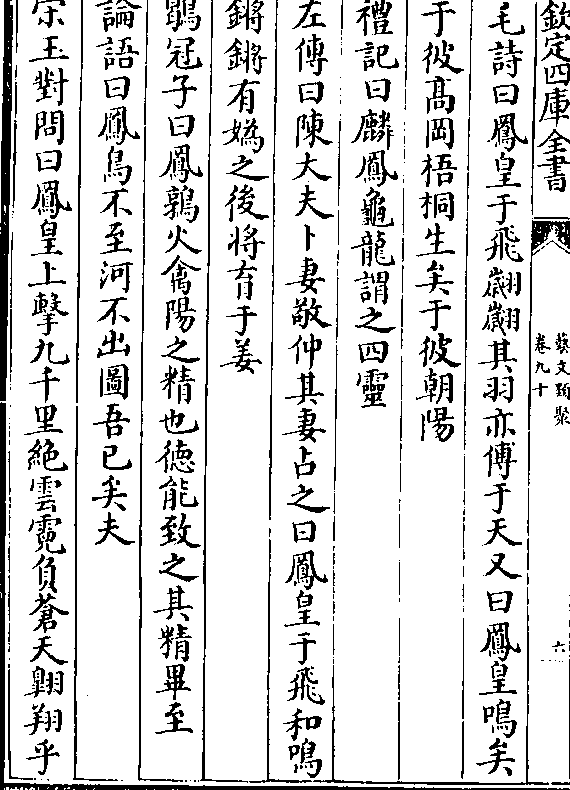 欽定四庫全書
藝文類聚
卷九十
六
毛詩曰鳳皇于飛翽翽其羽亦傅于天又曰鳳皇鳴矣
于彼髙岡梧桐生矣于彼朝陽
禮記曰麟鳳龜龍謂之四靈
左傳曰陳大夫卜妻敬仲其妻占之曰鳳皇于飛和鳴
鏘鏘有嬀之後將育于姜
鶡冠子曰鳳鶉火禽陽之精也德能致之其精畢至
論語曰鳳鳥不至河不出圖吾已矣夫
宋玉對問曰鳳皇上擊九千里絶雲霓負蒼天翺翔乎